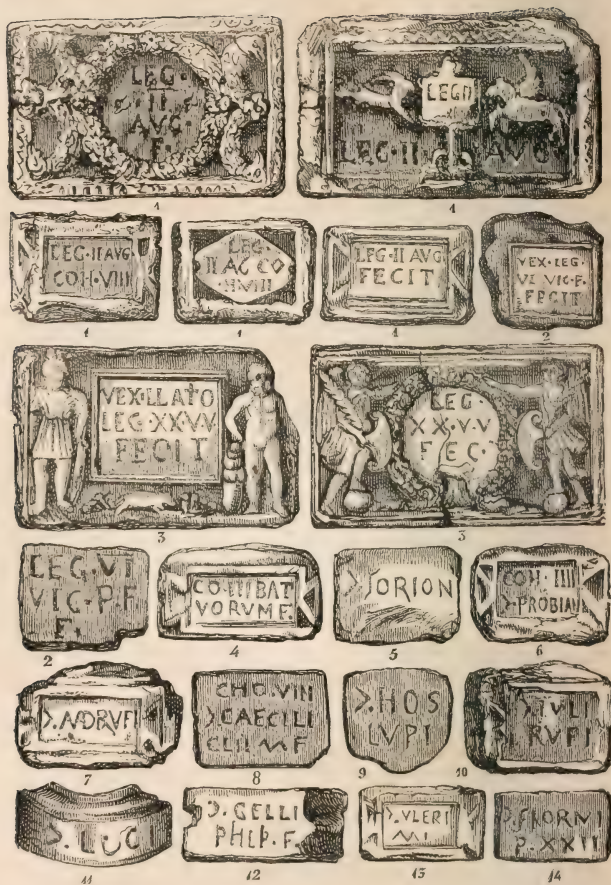 LEG·
II
AVG
F·
1
LEG II
LEG·II AVG
1
LEG·II AVG
COH·VIII
1
LEG·
II AG CO
HVIII
1
LEG·II AVG
FECIT
1
VEX·LEG·
VI VIC·F·
FECIT
2
VEX·LLATO
LEG·XX·V·V
FECIT
3
LEG
XX·V·V
FEC·
3
LEG·VI
VIC·P·F
F·
2
CO·IIII BAT
VORVM F·
4
5
COH·IIII
Ɔ·PROBIAN
6
7
CHO·VIII
CAECILI
8
Ɔ·HOS
LVPI
9
Ɔ·IVLI
RVFI
10
Ɔ·LVC
11
Ɔ·GELLI
PHLP·F·
12
Ɔ·VLERI
13
P·XXII
14